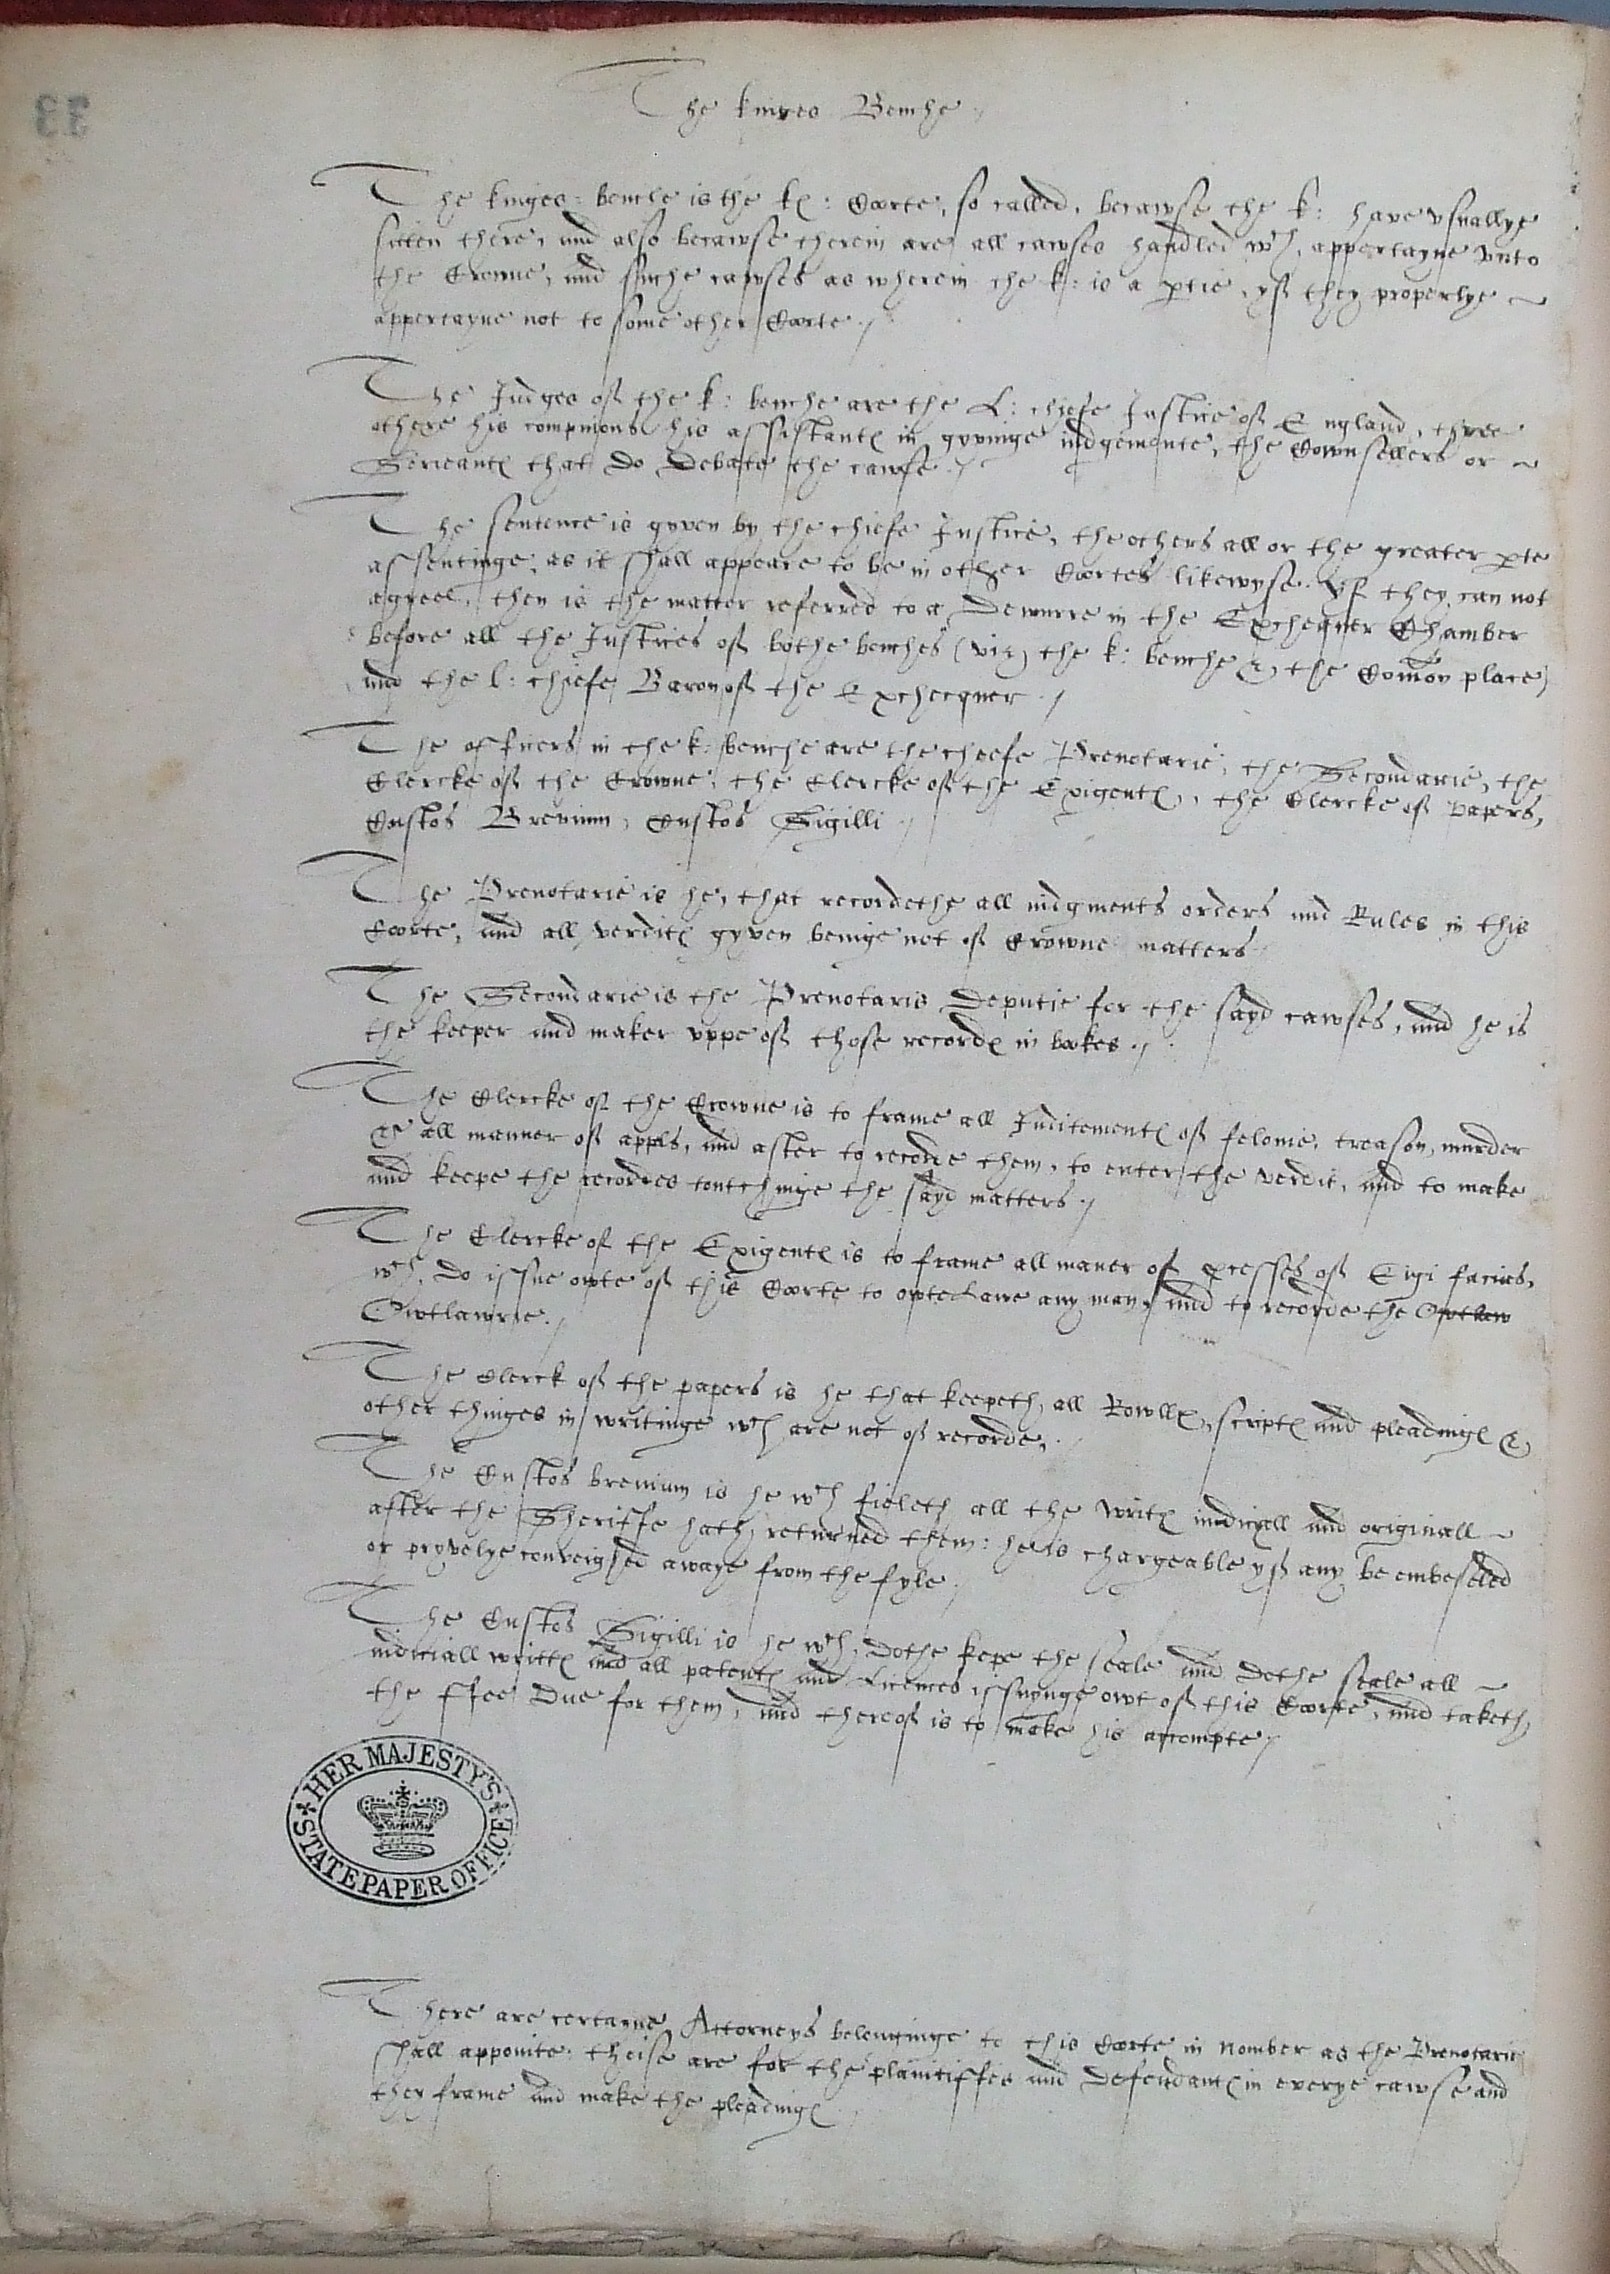 33
The kinges Benche
The kinges: benche is the k(es): Coorte, so called, becawse the k: have vsuallye
sitten there, and also becawse therein are all cawses handled wch, appertayne vnto
the Crowne, and suche cawses as wherein the k: is a ptie, yf they properlye
appertayne not to some other Coorte./
The Judges of the k: benche are the L: chiefe Justice of England, three
others his companions his assistantes in gyvinge iudgemente, the Cownsellers or
Serieantes that do debate the cawse./
The sentence is gyven by the chiefe Justice, the others all or the greater pte
assentinge, as it shall appeare to be in other Coortes likewyse. Yf they can not
agree, then is the matter referred to a Demurre in the Exchequer Chamber
before all the Justices of bothe benches (viz) the k: benche & the Comon place)
and the l: chiefe Baron of the Exchecquer./
The officers in the k: benche are the cheefe Prenotarie, the Secondarie, the
Clercke of the Crowne, the Clercke of the Exigentes, the Clercke of papers,
Custos Brevium, Custos Sigilli
The Prenotarie is he, that recordethe all iudgments orders and Rules in this
Coorte, and all verdites gyven beinge not of Crowne matters
The Secondarie is the Prenotaris Deputie for the sayd cawses, and he is
the keeper and maker vppe of those recordes in bookes./
The Clercke of the Crowne is to frame all Inditementes of felonie, treason, murder
& all manner of appls, and after to recorde them, to enter the verdit, and to make
and keepe the recordes toutchinge the sayd matters./
The Clercke of the Exigentes is to frame all maner of pcesses of Exigi facias,
wch, do issue owte of this Coorte to owteLawe any man, and to recorde the Owtlaw
Owtlawrie./
The Clerck of the papers is he that keepeth, all Rowlles, scriptes and pleadinges &
other thinges in writinge wch are not of recorde,
The Custos brevium is he wch fieleth all the writes iudiciall and originall
after the Sheriffe hath, returned them: he is chargeable yf any be embeseled
or pryvelye conveighed awaye from the fyle
The Custos Sigilli is he wch, dothe kepe the seale and dothe seale all
iudiciall writtes and all patentes and Licences issuynge owt of this Coorte, and taketh,
the ffee due for them, and thereof is to make his accompte/
HER MAJESTY'S STATE PAPER OFFICE
There are certayne Attorneys belonginge to this Coorte in nomber as the Prenotarie
shall appointe: theise are for the plaintiffes and defendantes in everye cawse and
they frame and make the pleadinges